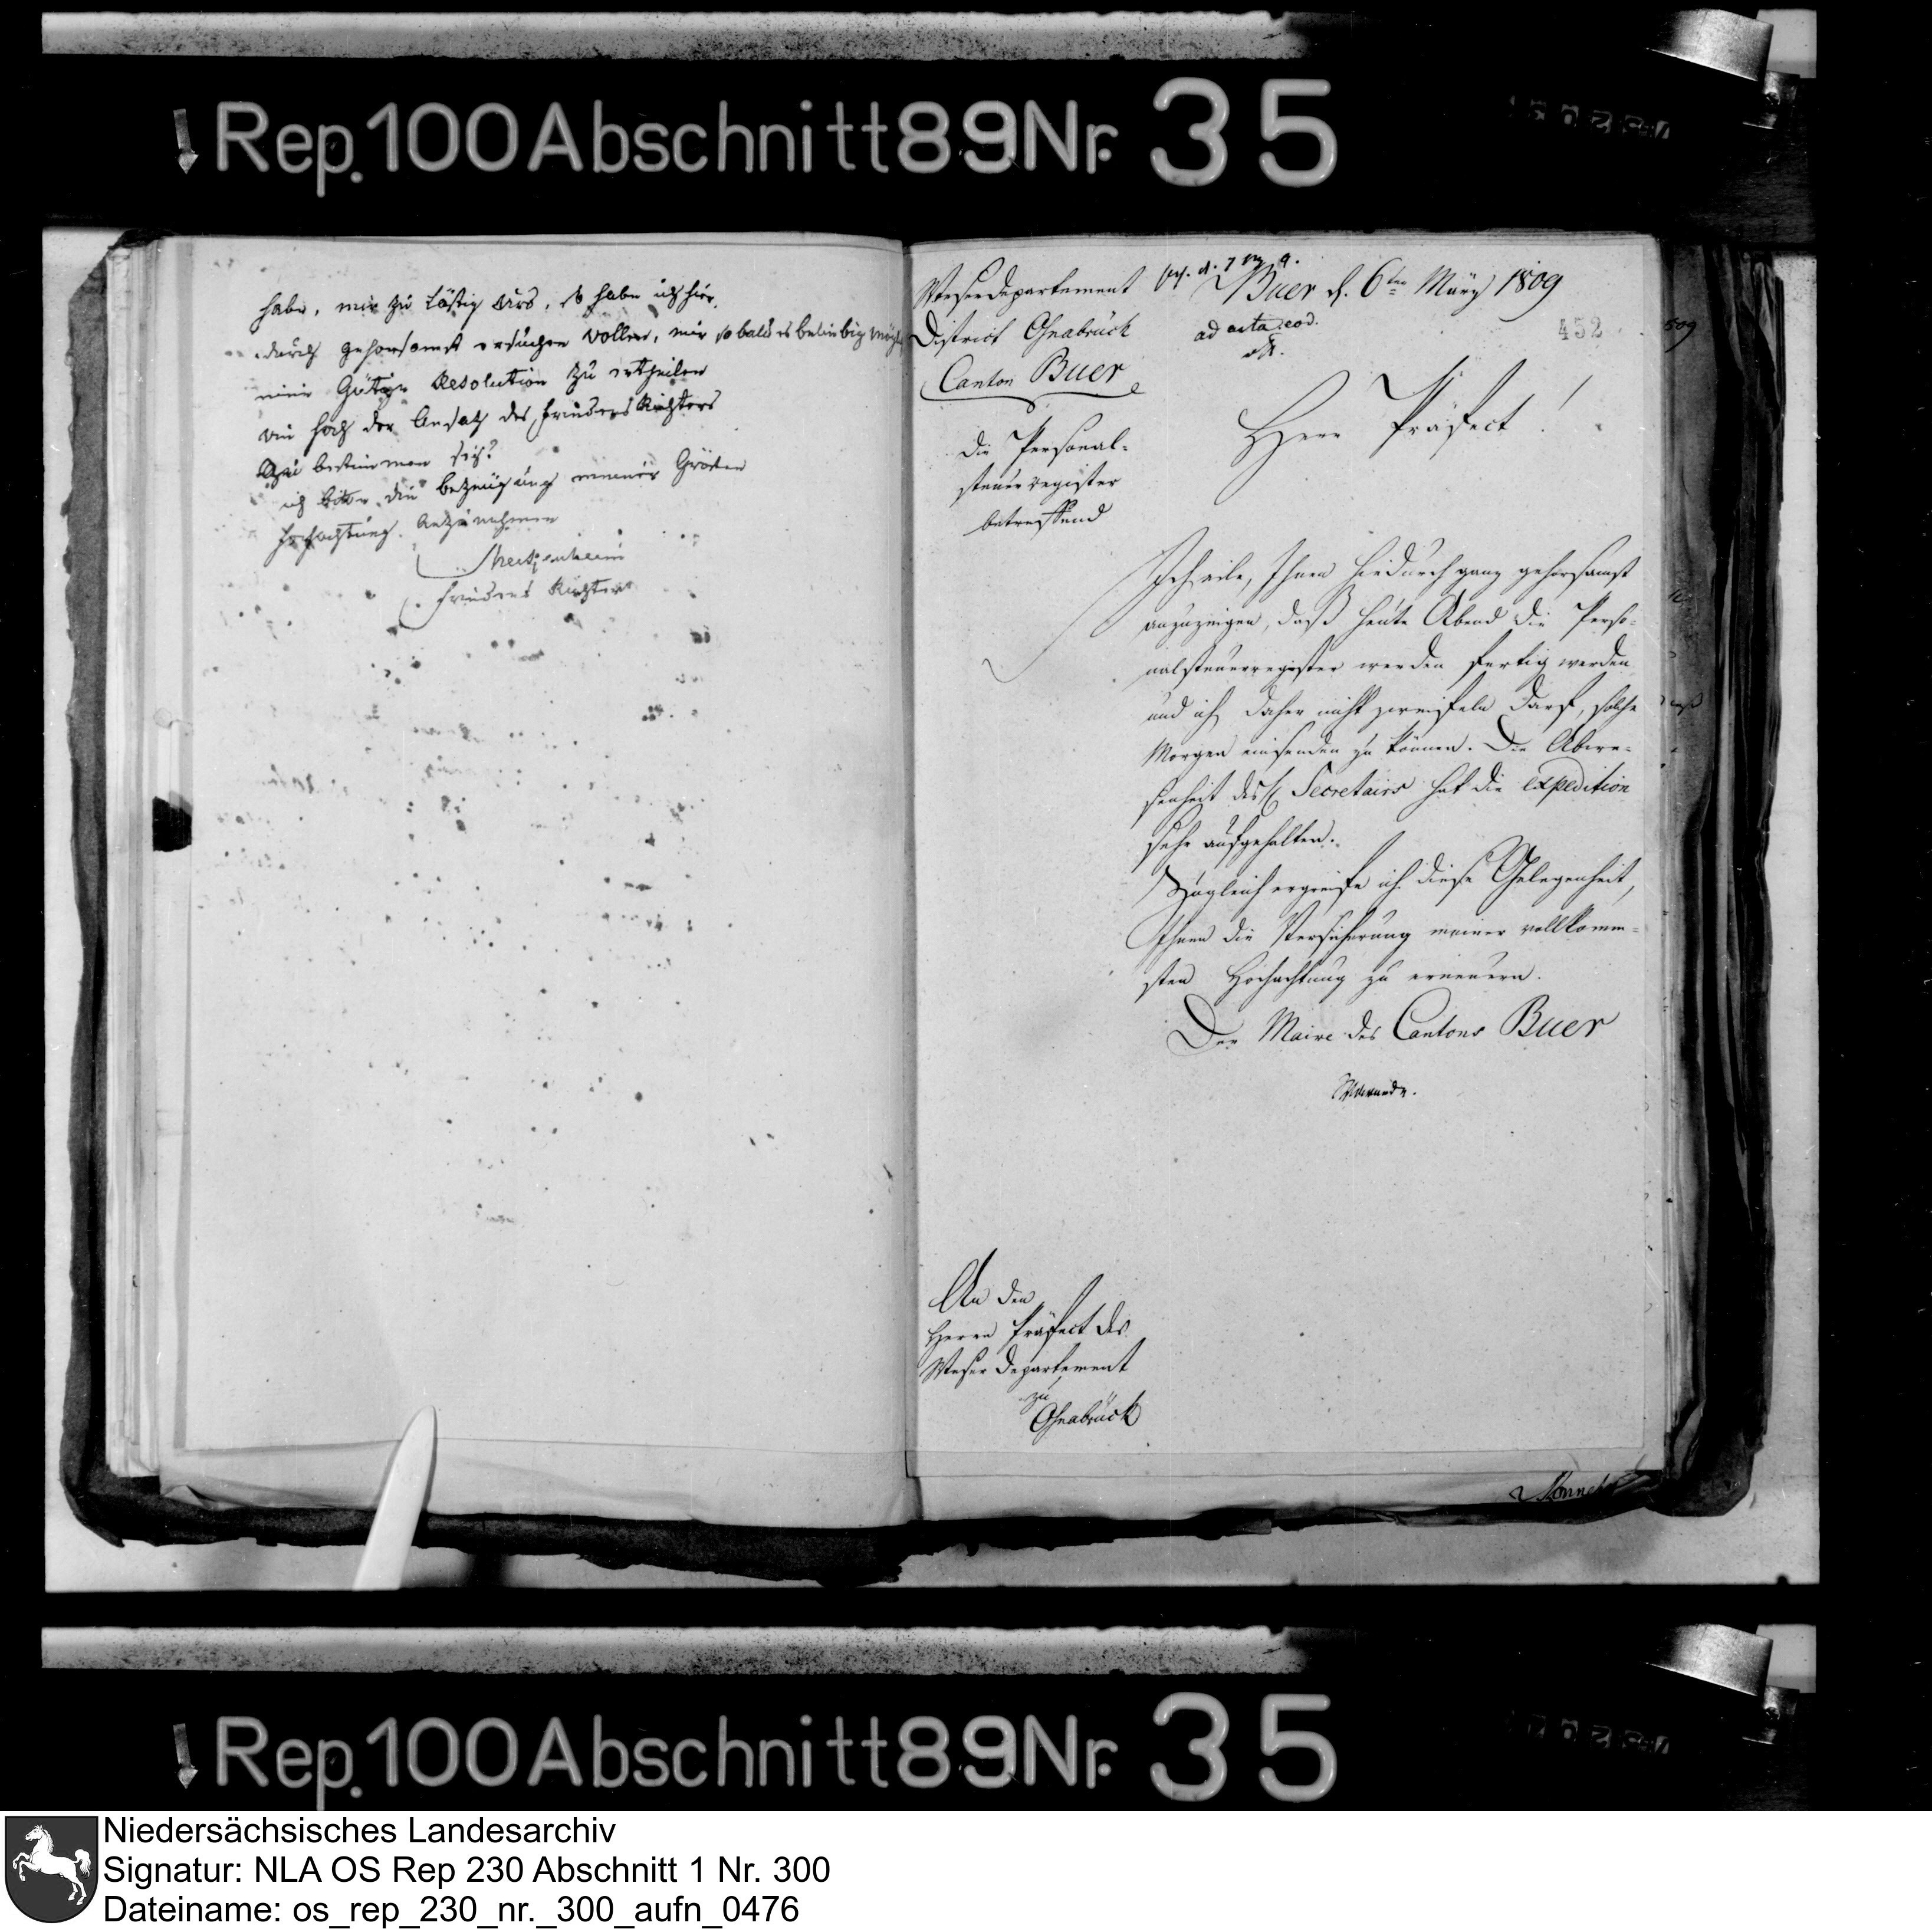 Rep. 100 Abschnitt 89 Nr. 35
habe, mir zu lästig , so habe ich hier
durch gehorsamst ersuchen wollen, mir so bald es beliebig
eine Gütige Resolution zu ertheilen
wie hoch der Ansatz des Friedens Richters
zu bestimmen sey?
ich bitte die bezeugung meiner Grösten
Hochachtung anzunehmen
Friedens Richter
Weserdepartement
District Osnabrück
Canton Buer
Buer d. 6ten März 1809
ad acta eod.
452
Die Personal-
steuerregister
betreffend
Herr Präfect!
Ich eile, Ihnen hiedurch ganz gehorsamst
anzuzeigen, daß heute Abend die Perso-
nalsteuerregister werden fertig werden
und ich daher nicht zweifeln darf, solche
Morgen einsenden zu können. Die Abwe-
senheit des Secretairs hat die expedition
sehr aufgehalten.
Zugleich ergreife ich diese Gelegenheit,
Ihnen die Versicherung meiner vollkomm-
sten Hochachtung zu erneuern.
Der Maire des Cantons Buer
An den
Herrn Präfect des
Weser Departement
zu
Osnabrück
Rep. 100 Abschnitt 89 Nr. 35
Niedersächsisches Landesarchiv
Signatur: NLA OS Rep 230 Abschnitt 1 Nr. 300
Dateiname: os_rep_230_nr._300_aufn_0476